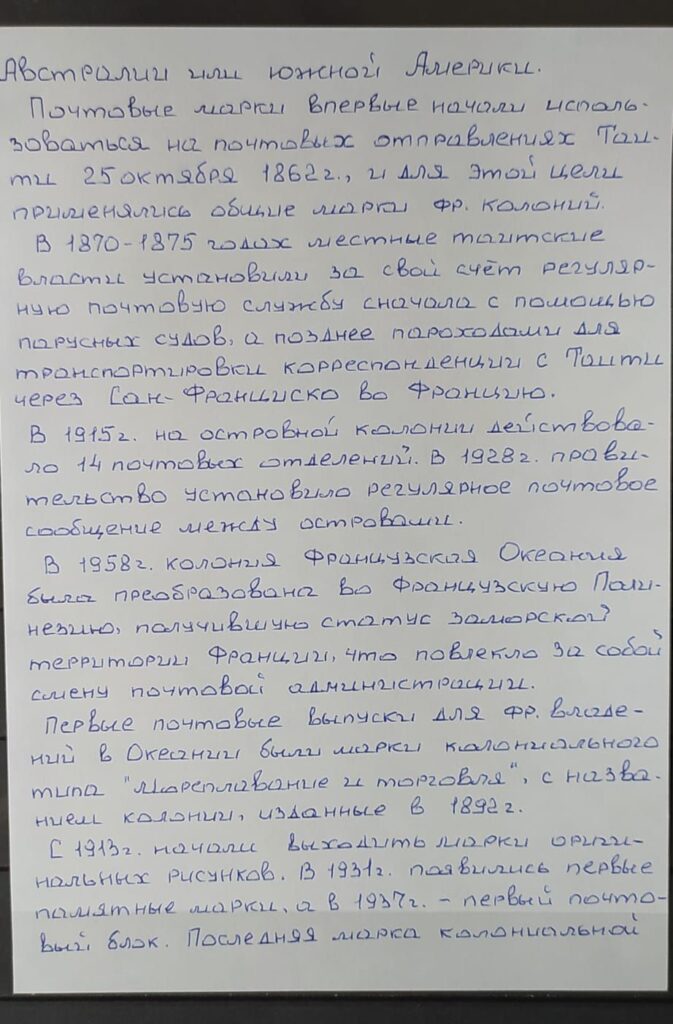 Австралии или южной Америки.
Почтовые марки впервые начали исполь-
зоваться на почтовых отправлениях Таи-
ти 25 октября 1862г., и для этой цели
применялись общие марки фр. колоний.
В 1870-1875 годах местные таитские
власти установили за свой счёт регуляр-
ную почтовую службу сначала с помощью
парусных судов, а позднее пароходами для
транспортировки корреспонденции с Таити
через Сан-Франциско во Францию.
В 1915г. на островной колонии действова-
ло 14 почтовых отделений. В 1928г. прави-
тельство установило регулярное почтовое
сообщение между островами.
В 1958г. колония Французская Океания
была преобразована во Французскую Поли-
незию, получившую статус заморской
территории Франции, что повлекло за собой
смену почтовой администрации.
Первые почтовые выпуски для фр. владе-
ний в Океании были марки колониального
типа "Мореплавание и торговля", с назва-
нием колонии, изданные в 1892г.
С 1913г. начали выходить марки ориги-
нальных рисунков. В 1931г. появились первые
памятные марки, а в 1937г. - первый почто-
вый блок. Последняя марка колониальной